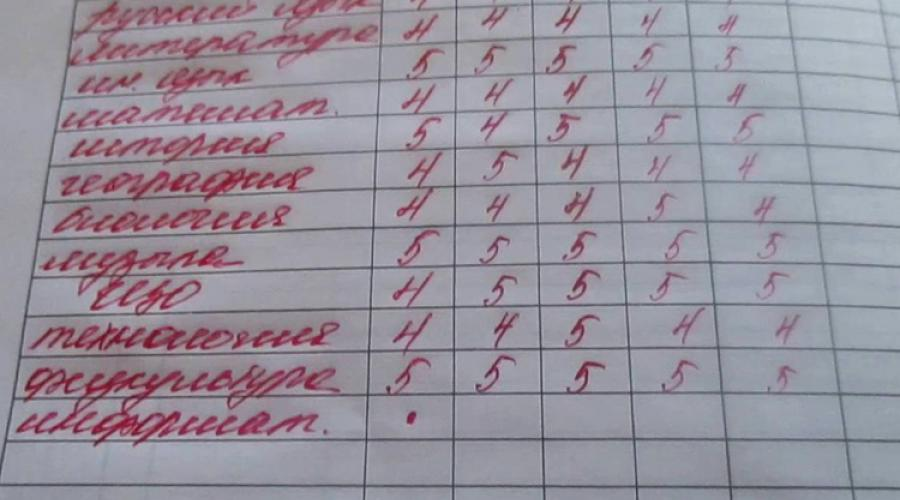 русский язык
литература 4 4 4 4 4
ин. язык 5 5 5 5 5
математ. 4 4 4 4 4
история 5 4 5 5 5
география 4 5 4 4 4
биология 4 4 4 5 4
музыка 5 5 5 5 5
ИЗО 4 5 5 5 5
технология 4 4 5 4 4
физкультура 5 5 5 5 5
информат.